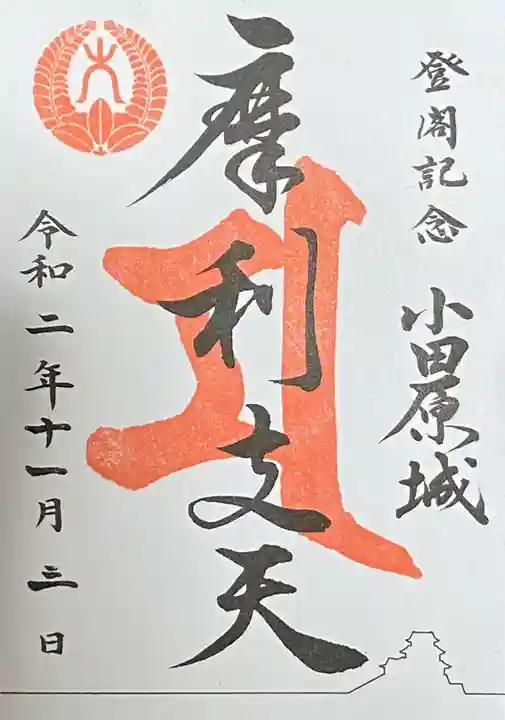 登閣記念 小田原城
摩利支天
令和二年十一月三日